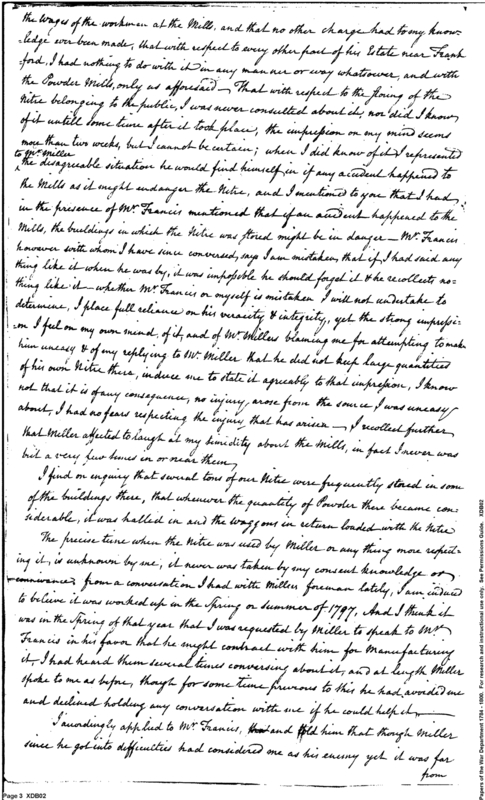 the Wages of the workmen at the Mills, and that no other charge had to my know-
ledge ever been made, that with respect to every other part of his Estate near Frank
ford, I had nothing to do with it in any manner or way whatsoever, and with
the Powder Mills, only as aforesaid — That with respect to the storing of the
Nitre belonging to the public, I was never consulted about it, nor did I know
of it untill some time after it took place, the impression on my mind seems
more than two weeks, but I cannot be certain; when I did know of it I represented
to Mr. Miller
the disagreeable situation he would find himself in if any accident happened to
the Mills as it might endanger the Nitre, and I mentioned to you that I had
in the presence of Mr. Francis mentioned that if an accident happened to the
Mills, the buildings in which the Nitre was stored might be in danger — Mr. Francis
however with whom I have since conversed, says I am mistaken, that if I had said any
thing like it when he was by, it was impossible he should forget it & he recollects no-
thing like it — whether Mr. Francis or myself is mistaken I will not undertake to
determine, I place full reliance on his veracity & integrity, yet the strong impressi-
on I feel on my own mind, of it, and of Mr. Millers blaming me for attempting to make
him uneasy & of my replying to Mr. Miller that he did not keep large quantities
of his own Nitre there, induce me to state it agreeably to that impression, I know
not that it is of any consequence, no injury arose from the source I was uneasy
about, I had no fears respecting the injury that has arisen — I recollect further
that Miller affected to laugh at my timidity about the Mills, in fact I never was
but a very few times in or near them
I find on inquiry that several tons of our Nitre were frequently stored in som
of the buildings there, that whenever the quantity of Powder there became con-
siderable, it was halled in and the waggons in return loaded with the Nitre
The precise time when the Nitre was used by Miller or any thing more respect-
ing it, is unknown by me, it never was taken by my consent knowledge or
connivance from a conversation I had with Millers foreman lately, I am induced
to believe it was worked up in the Spring or summer of 1797. And I think it
was in the Spring of that year that I was requested by Miller to speak to Mr.
Francis in his favor that he might contract with him for Manufacturing
it, I had heard them several times conversing about it, and at length Miller
spoke to me as before, though for some time previous to this he had avoided me
and declined holding any conversation with me if he could help it —
I accordingly applied to Mr. Francis, and told him that though Miller
since he got into difficulties had considered me as his enemy yet it was far
from
Page 3 XDB02
Papers of the War Department 1784 - 1800. For research and instructional use only. See Permissions Guide. XDB02